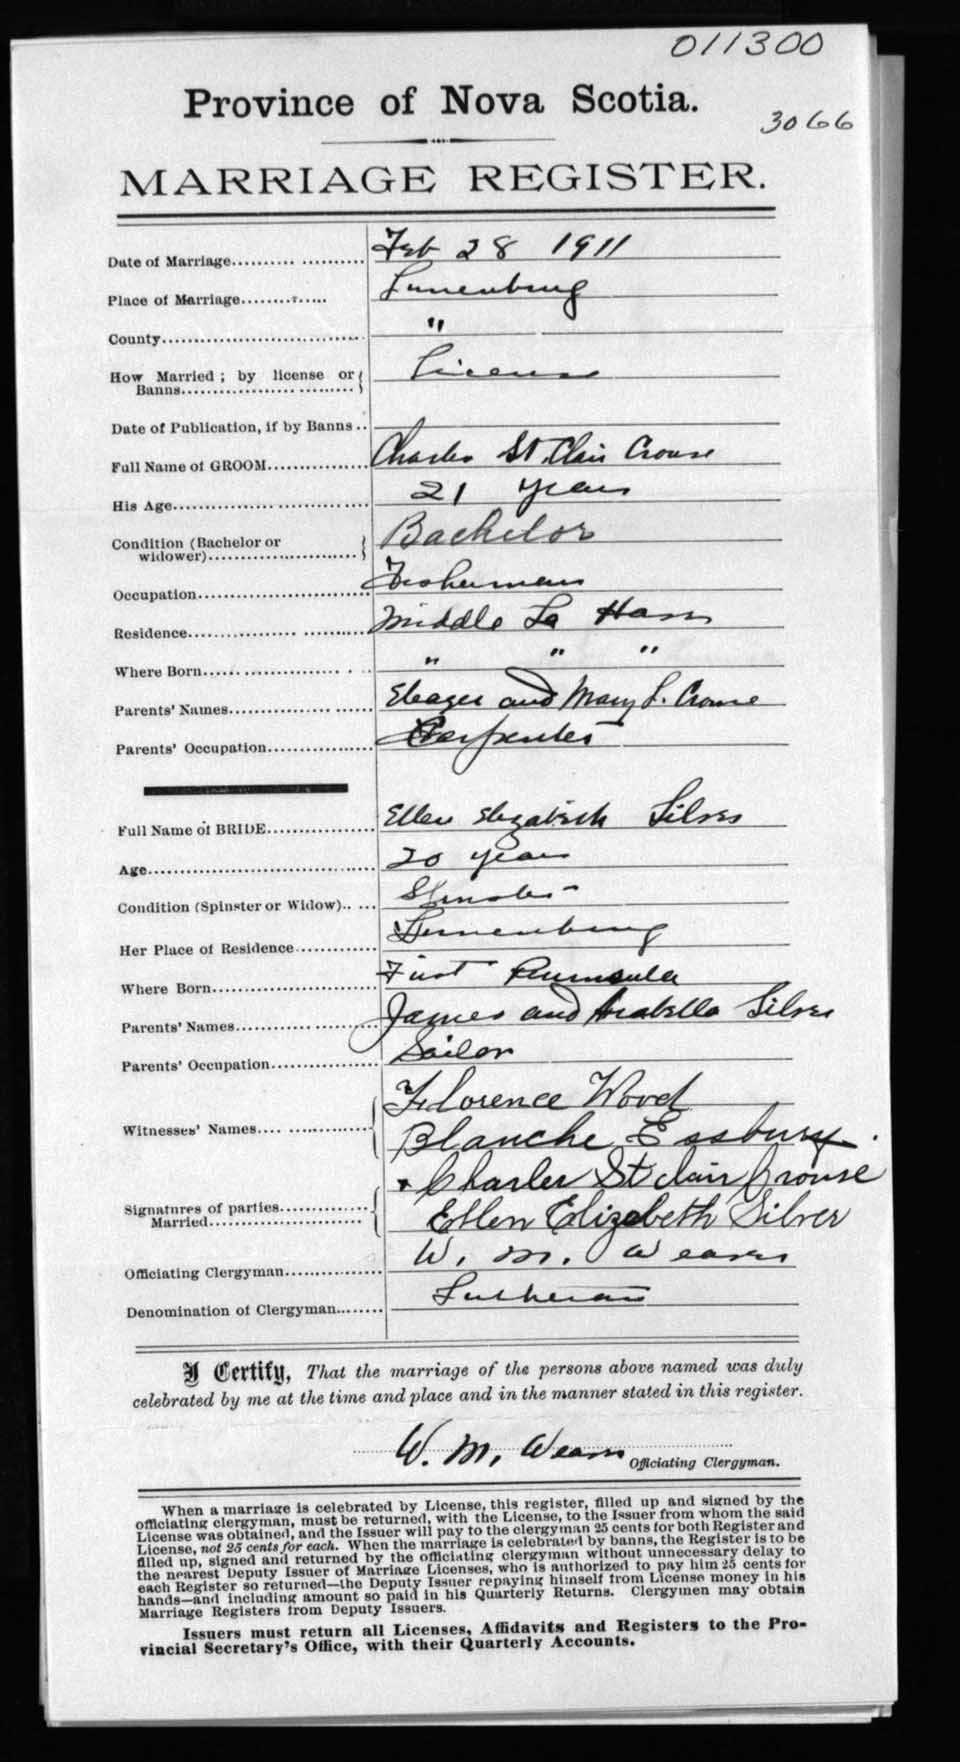 011300
Province of Nova Scotia.
3066
MARRIAGE REGISTER.
Date of Marriage Feb 28 1911
Place of Marriage Lunenburg
County "
How Married; by license or Banns License
Date of Publication, if by Banns
Full Name of GROOM Charles St. Clair Crouse
His Age 21 years
Condition (Bachelor or widower) Bachelor
Occupation Fisherman
Residence Middle La Have
Where Born " " "
Parents' Names and Mary L. Crouse
Parents' Occupation Carpenter
Full Name of BRIDE Ellen Elizabeth Silver
Age 20 years
Condition (Spinster or Widow) Spinster
Her Place of Residence Lunenburg
Where Born First Peninsula
Parents' Names James and Arabella Silver
Parents' Occupation Sailor
Witnesses' Names Florence Wood
Blanche Essbury
Signatures of parties Married Charles St clair Crouse
Ellen Elizabeth Silver
Officiating Clergyman W. M. Weaver
Denomination of Clergyman Lutheran
I Certify, That the marriage of the persons above named was duly
celebrated by me at the time and place and in the manner stated in this register.
W. M. Weaver
Officiating Clergyman.
When a marriage is celebrated by License, this register, filled up and signed by the
officiating clergyman, must be returned, with the License, to the Issuer from whom the said
License was obtained, and the Issuer will pay to the clergyman 25 cents for both Register and
License, not 25 cents for each. When the marriage is celebrated by banns, the Register is to be
filled up, signed and returned by the officiating clergyman without unnecessary delay to
the nearest Deputy Issuer of Marriage Licenses, who is authorized to pay him 25 cents for
each Register so returned—the Deputy Issuer repaying himself from License money in his
hands—and including amount so paid in his Quarterly Returns. Clergymen may obtain
Marriage Registers from Deputy Issuers.
Issuers must return all Licenses, Affidavits and Registers to the Pro-
vincial Secretary's Office, with their Quarterly Accounts.